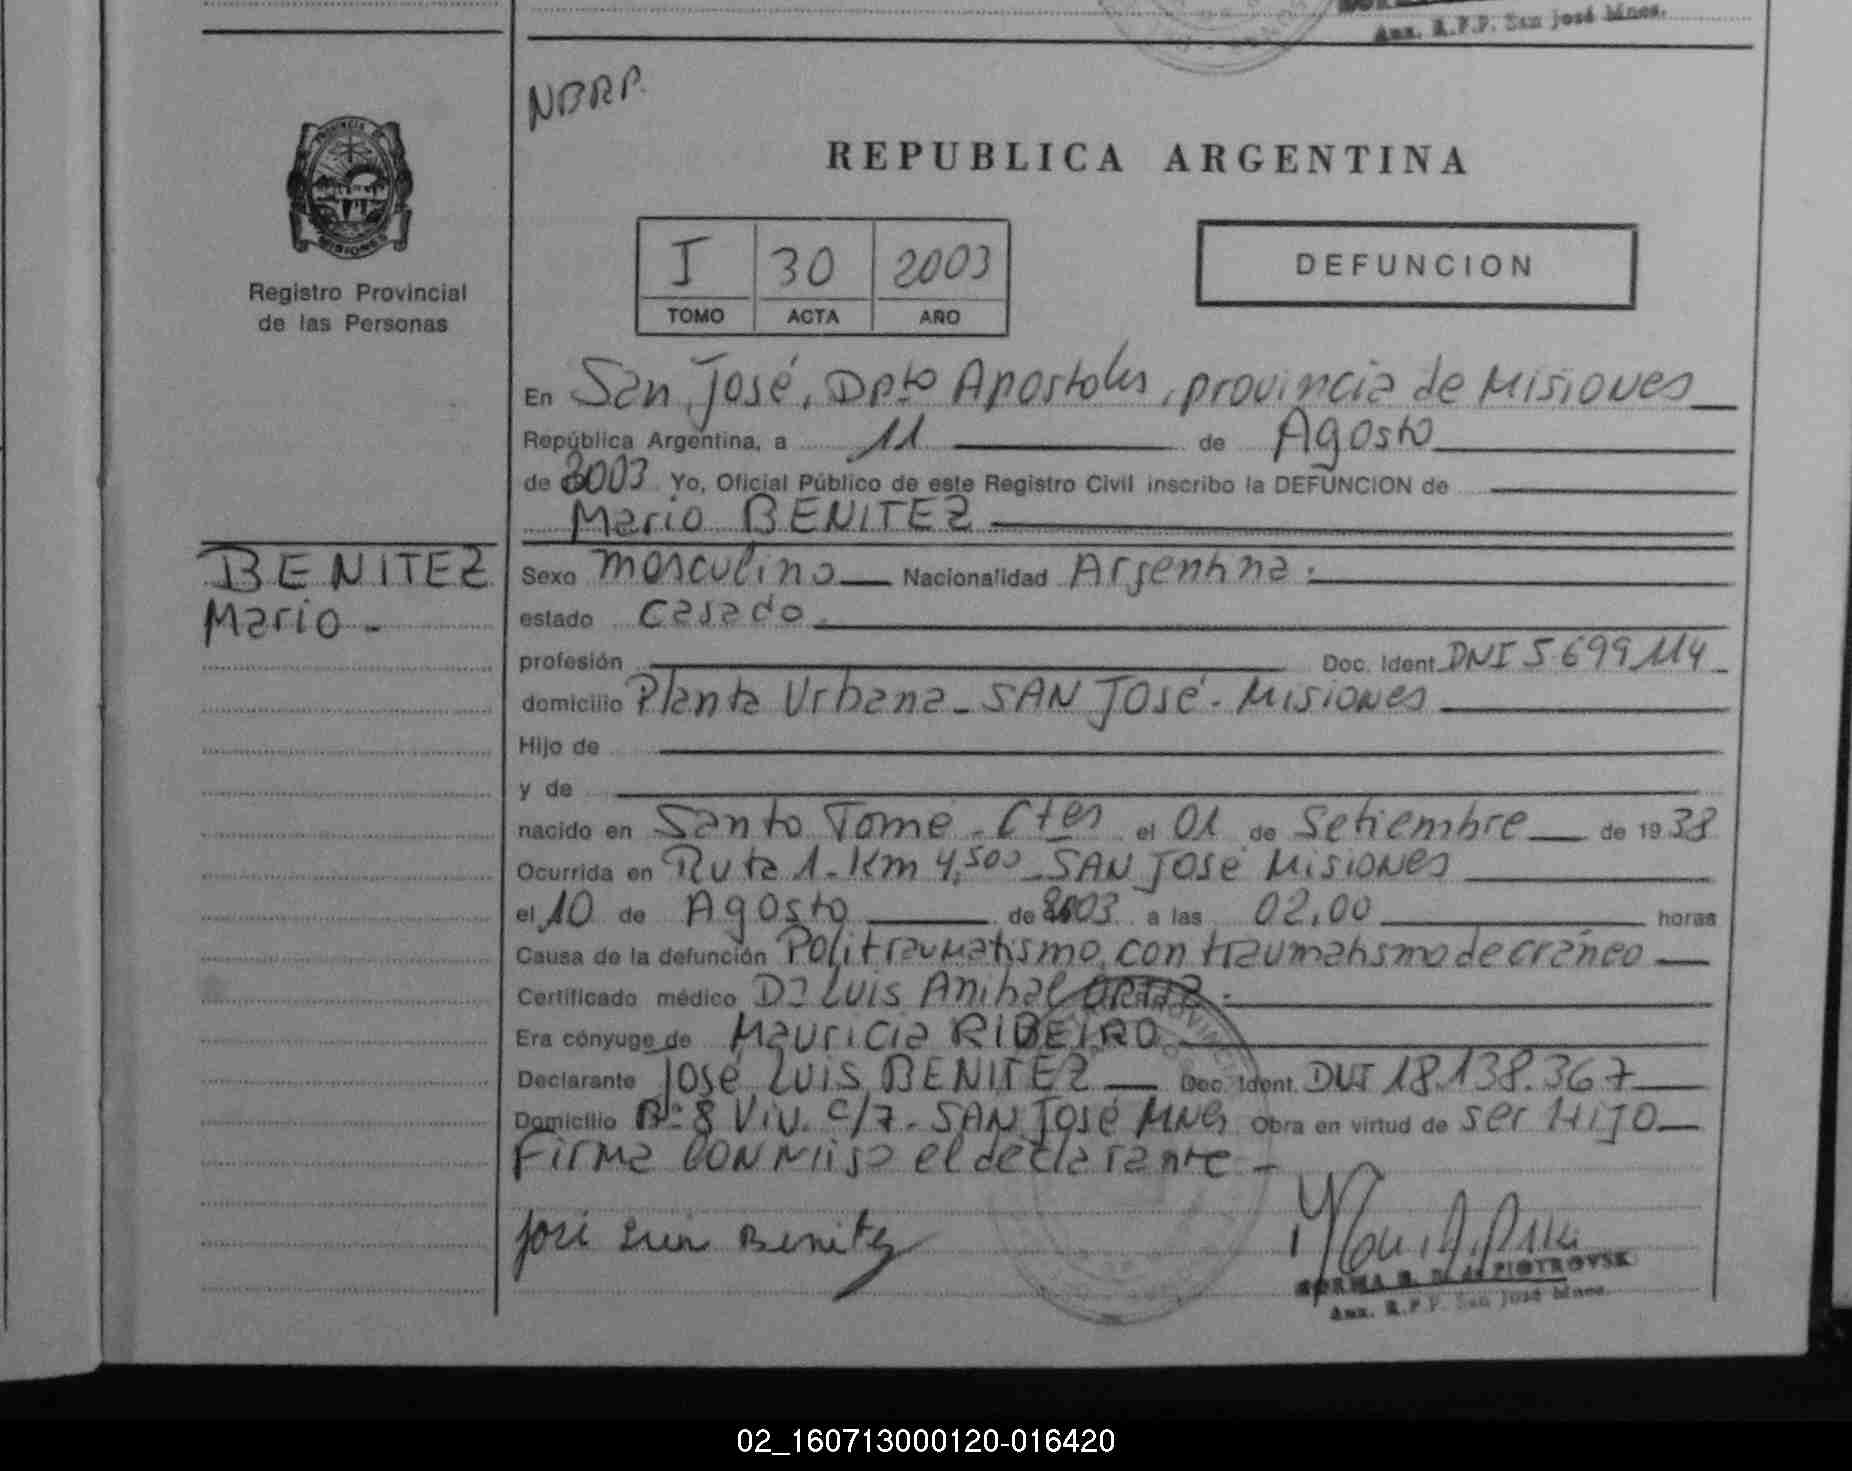 Aux. R.P.P. San José Mnes.
NBRP.
PROVINCIA DE
MISIONES
Registro Provincial
de las Personas
REPUBLICA ARGENTINA
I 30 2003
TOMO ACTA AÑO
DEFUNCION
En San José, Dpto Apostoles, provincia de Misiones
República Argentina, a 11 de Agosto
de 2003 Yo, Oficial Público de este Registro Civil inscribo la DEFUNCION de
Mario BENITEZ
BENITEZ
Mario -
Sexo masculino Nacionalidad Argentina.
estado Casado.
profesión Doc. Ident. DNI 5.699.114
domicilio Planta Urbana - SAN José - Misiones
Hijo de
y de
nacido en Santo Tomé - Ctes el 01 de Setiembre de 1938
Ocurrida en Ruta 1 - Km 4,500 - SAN José Misiones
el 10 de Agosto de 2003 a las 02,00 horas
Causa de la defunción Politraumatismo, con traumatismo de cráneo
Certificado médico Dr Luis Anibal ORTIZ.
Era cónyuge de Mauricia RIBEIRO
Declarante José Luis BENITEZ Doc. Ident. DNI 18.138.367
Domicilio B: 8 Viv. c/7 - SAN José Mnes Obra en virtud de ser HIJO
Firma CONMigo el declarante -
José Luis Benitez
NORMA B. D. de PIOTROVSKI
Aux. R.P.P. San José Mnes.
02_160713000120-016420